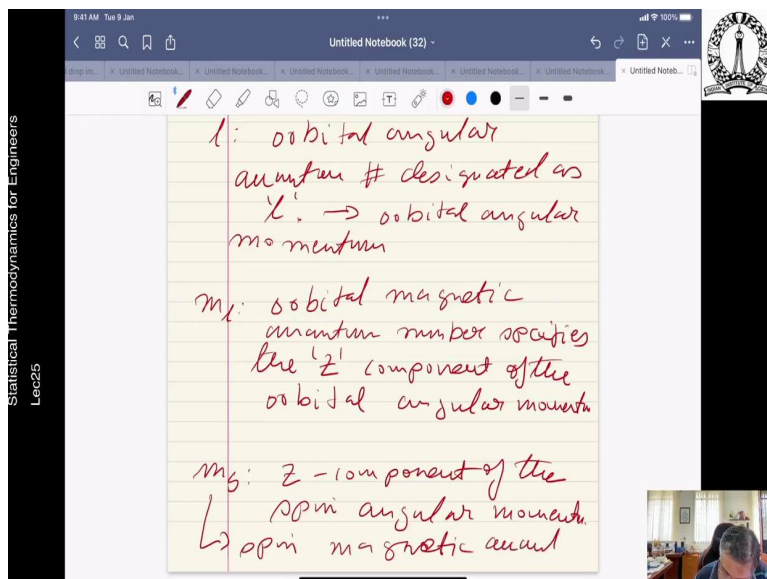 9:41 AM Tue 9 Jan
100%
Untitled Notebook (32)
drop im...
× Untitled Notebook...
× Untitled Notebook...
× Untitled Notebook...
× Untitled Notebook...
× Untitled Notebook...
× Untitled Notebook...
× Untitled Noteb...
Statistical Thermodynamics for Engineers
Lec25
l: orbital angular
quantum # designated as
'l'. → orbital angular
momentum
m_l: orbital magnetic
quantum number specifies
the 'Z' component of the
orbital angular momentu
m_s: Z - component of the
spin angular momentu.
↳ spin magnetic quant